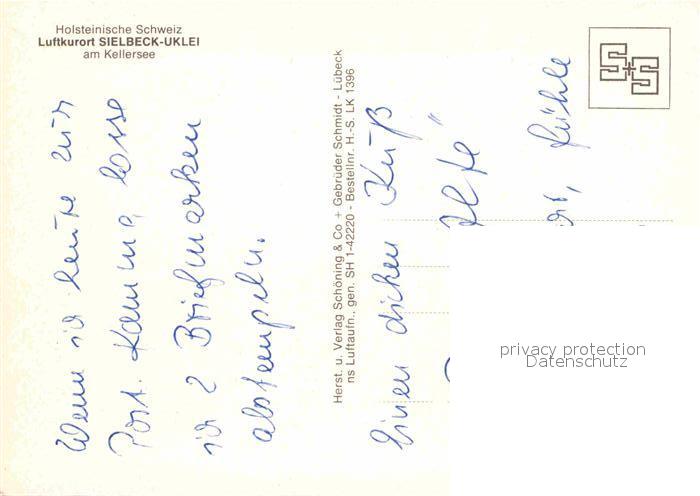 Holsteinische Schweiz
Luftkurort SIELBECK-UKLEI
am Kellersee
Wenn ich heute zur
Post komme, lasse
ich 2 Briefmarken
abstempeln.
Herst. u. Verlag Schöning & Co + Gebrüder Schmidt - Lübeck
ns Luftaufn., gen. SH 1-42220 - Bestellnr. H.-S. LK 1396
S+S
Einen dicken Kuß
fühle
privacy protection
Datenschutz